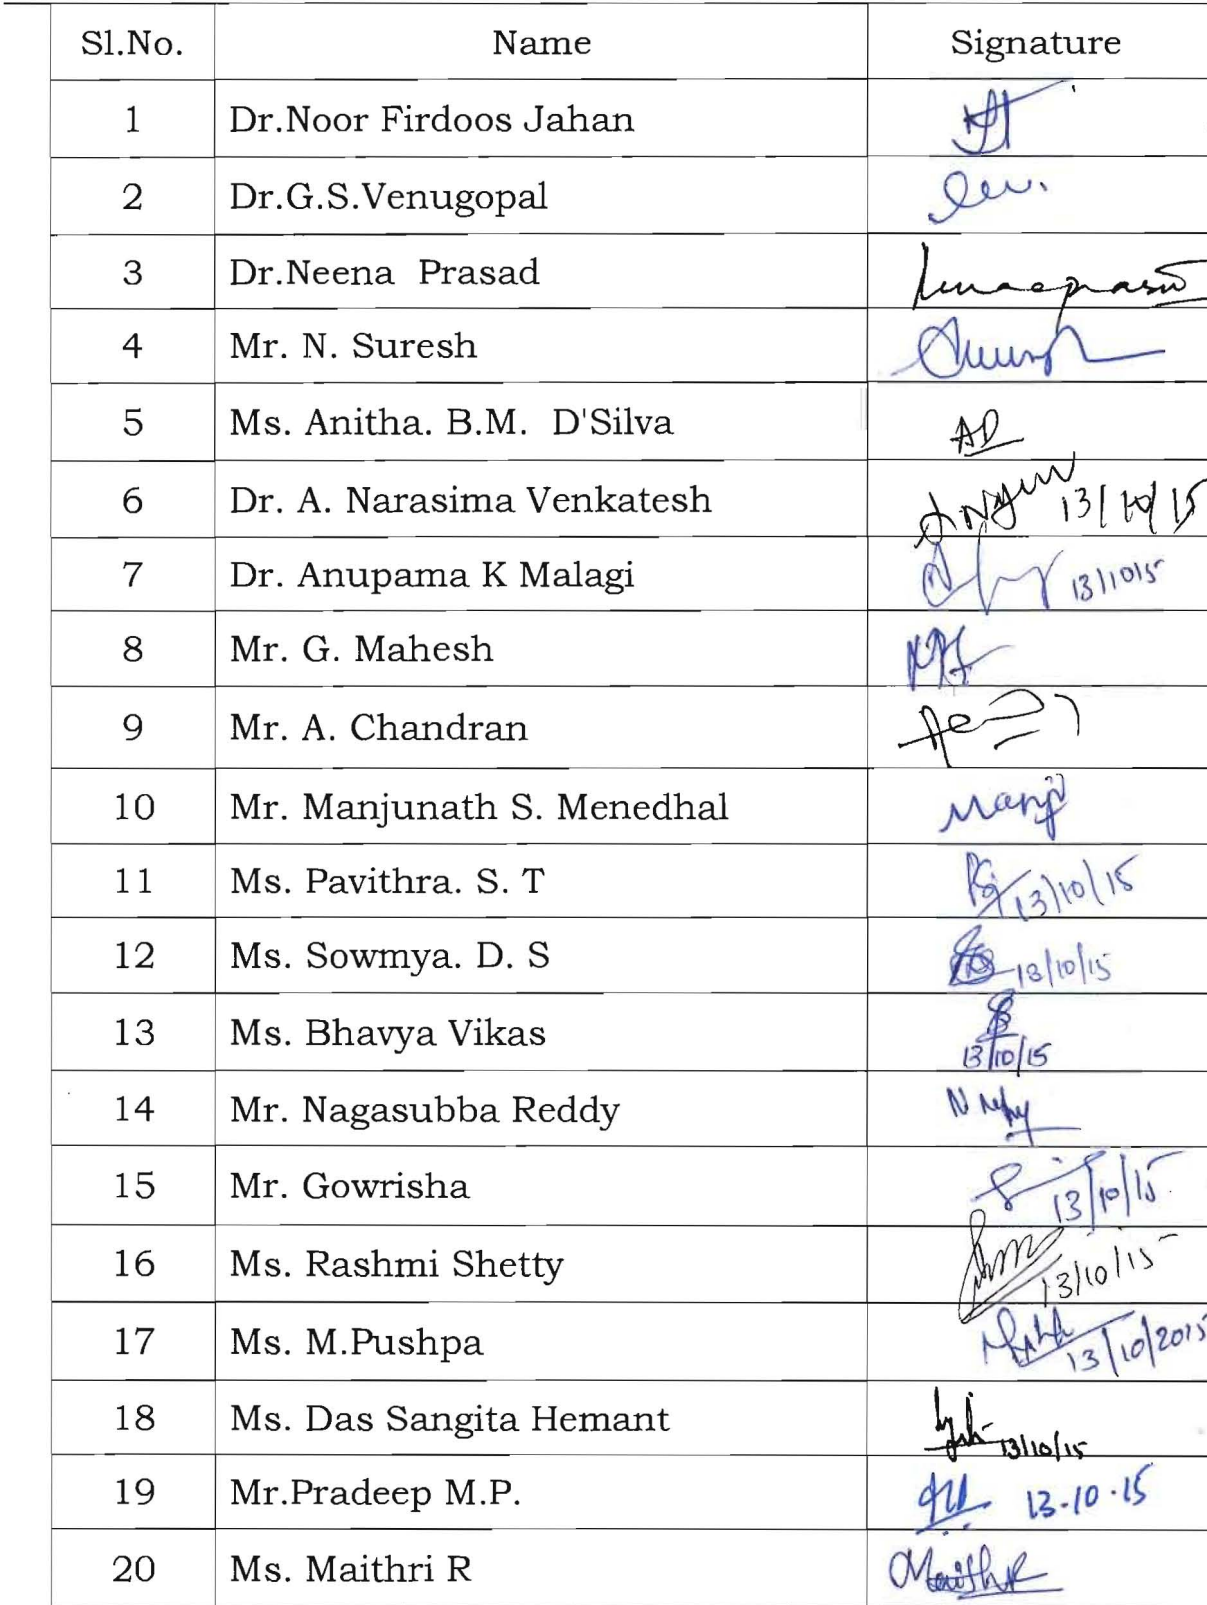 Sl.No. Name Signature
1 Dr.Noor Firdoos Jahan
2 Dr.G.S.Venugopal
3 Dr.Neena Prasad
4 Mr. N. Suresh
5 Ms. Anitha. B.M. D'Silva AD
6 Dr. A. Narasima Venkatesh 13/10/15
7 Dr. Anupama K Malagi 13/10/15
8 Mr. G. Mahesh
9 Mr. A. Chandran
10 Mr. Manjunath S. Menedhal
11 Ms. Pavithra. S. T 13/10/15
12 Ms. Sowmya. D. S 13/10/15
13 Ms. Bhavya Vikas
13/10/15
14 Mr. Nagasubba Reddy
15 Mr. Gowrisha 13/10/15
16 Ms. Rashmi Shetty 13/10/15
17 Ms. M.Pushpa 13/10/2015
18 Ms. Das Sangita Hemant 13/10/15
19 Mr.Pradeep M.P. 13-10-15
20 Ms. Maithri R